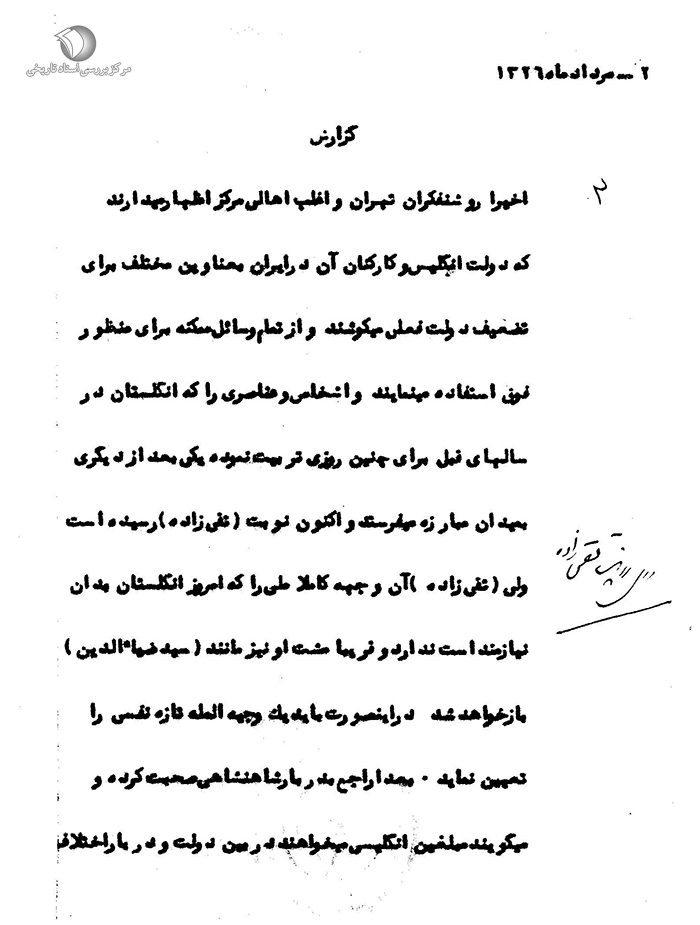 مرکز بررسی اسناد تاریخی
۲ ـــ مرداد ماه ۱۳۲۶
گزارش
۲
اخیرا روشنفکران تهران و اغلب اهالی مرکز اظهار میدارند
که دولت انگلیس و کارکنان آن در ایران بعناوین مختلف برای
تضعیف دولت فعلی میکوشند و از تمام وسائل ممکنه برای منظور
فوق استفاده مینمایند و اشخاص و عناصری را که انگلستان در
سالهای قبل برای چنین روزی تربیت نموده یکی بعد از دیگری
بمیدان مبارزه میفرستد و اکنون نوبت (تقی زاده) رسیده است
ولی (تقی زاده) آن وجهه کاملا ملی را که امروز انگلستان بدان
نیازمند است ندارد و قریبا مشت او نیز مانند (سید ضیاءالدین)
باز خواهد شد در اینصورت باید یک وجیه المله تازه نفسی را
تعیین نماید ۰ بعدا راجع بدربار شاهنشاهی صحبت کرده و
میگویند مبلغین انگلیسی میخواهند در بین دولت و دربار اختلاف
تقی زاده